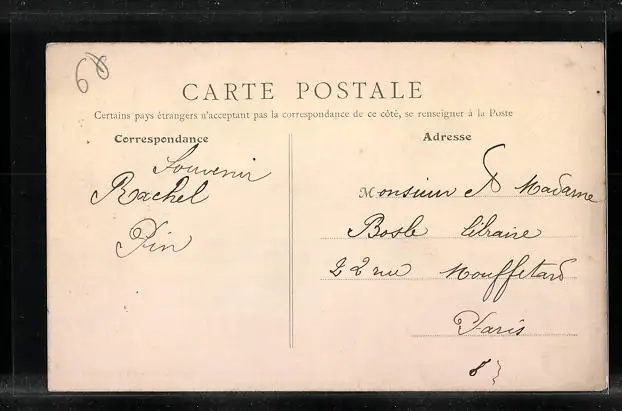 60
CARTE POSTALE
Certains pays étrangers n'acceptant pas la correspondance de ce côté, se renseigner à la Poste
Correspondance
Souvenir
Rachel
Pin
Adresse
Monsieur & Madame
Bosle libraire
22 rue Mouffetard
Paris